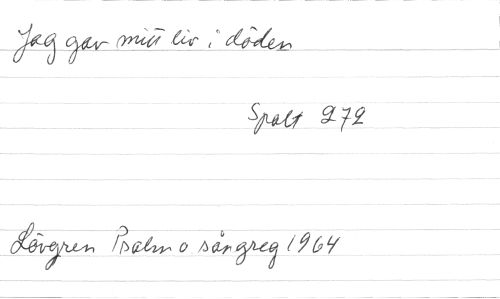 Jag gav mitt liv i döden
Spalt 272
Lövgren Psalm o sångreg 1964